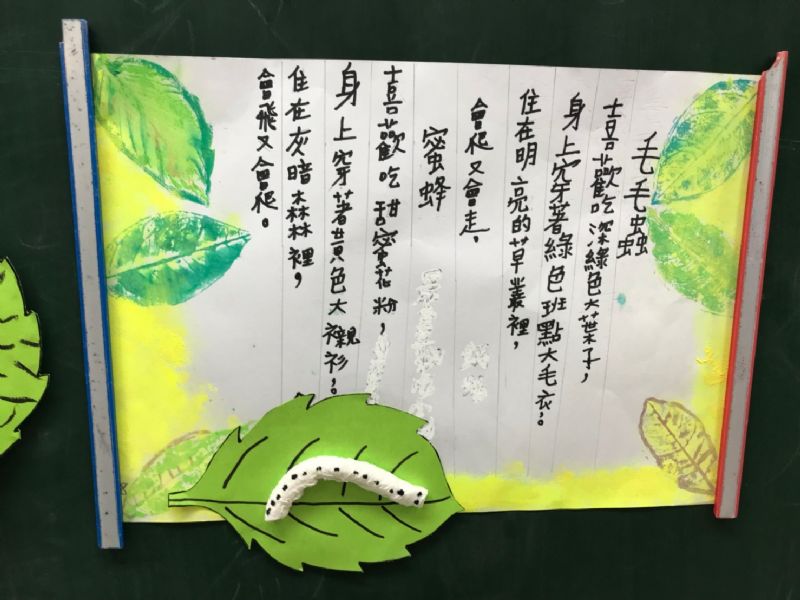 毛毛蟲
喜歡吃深綠色大葉子，
身上穿著綠色班點大毛衣。
住在明亮的草叢裡，
會爬又會走，
蜜蜂
喜歡吃甜蜜花粉，
身上穿著黃色大襯衫，。
住在灰暗森林裡，
會飛又會爬。